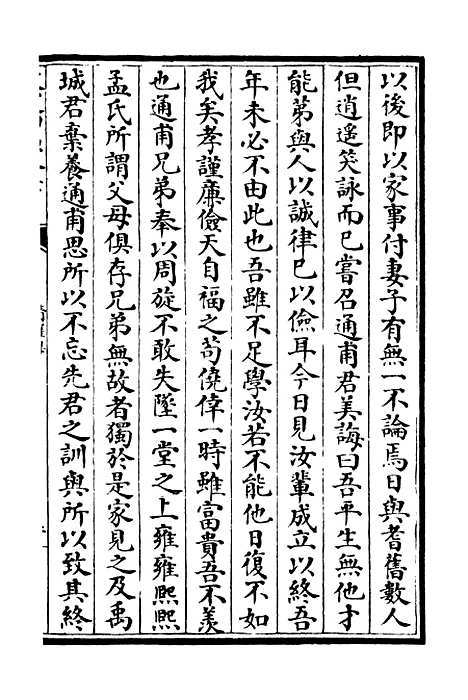 以後即以家事付妻子有無一不論焉日與耆舊數人
但逍遥笑詠而已嘗召通甫君美誨曰吾平生無他才
能第與人以誠律已以儉耳今日見汝輩成立以終吾
年未必不由此也吾雖不足學汝若不能他日復不如
我矣孝謹廉儉天自福之茍僥倖一時雖富貴吾不羡
也通甫兄弟奉以周旋不敢失墜一堂之上雍雍熙熙
孟氏所謂父母俱存兄弟無故者獨於是家見之及禹
城君棄養通甫思所以不忘先君之訓與所以致其終